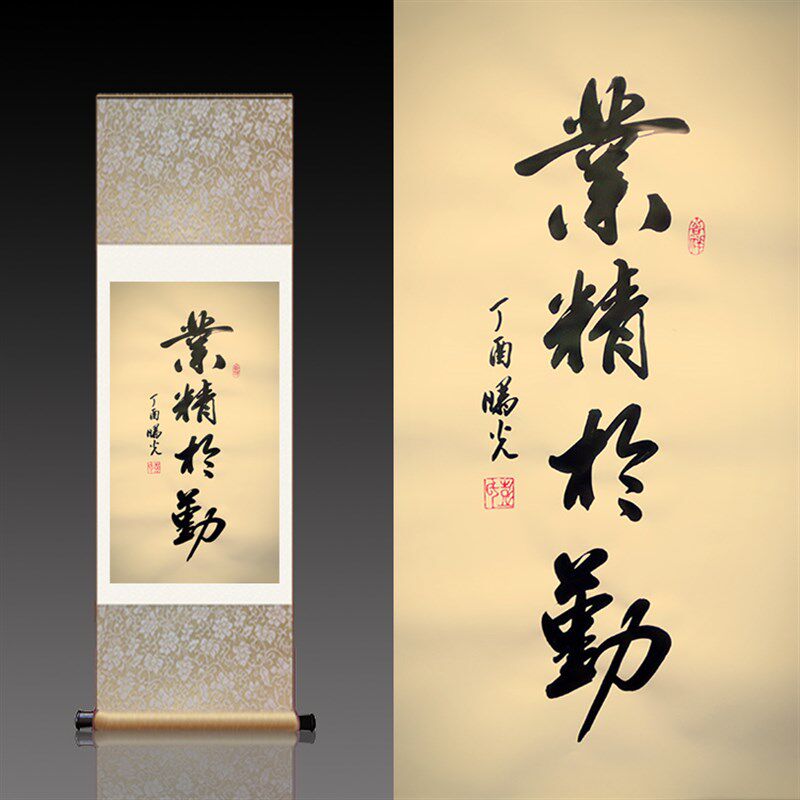 業精於勤
丁酉光
業精於勤
丁酉光